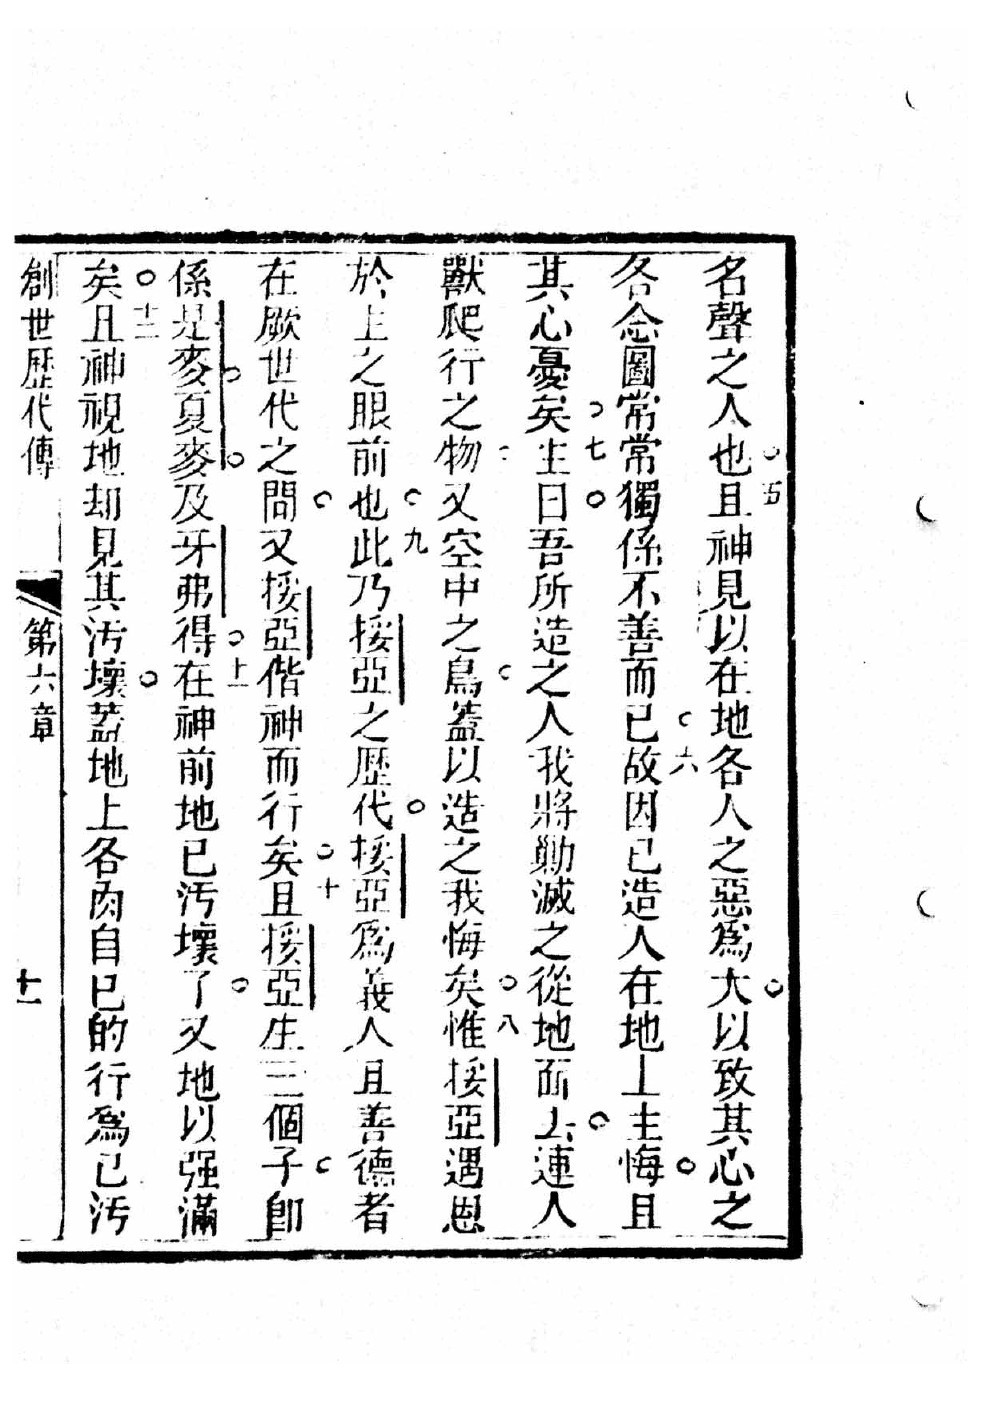 名聲之人也。五且神見以在地各人之惡爲大。以致其心之
各念圖常常獨係不善而已。六故因已造人在地上主悔。且
其心憂矣。七主曰。吾所造之人我將勦滅之從地面去。連人
獸爬行之物。又空中之鳥。蓋以造之我悔矣。八惟挼亞遇恩
於上之眼前也。九此乃挼亞之歷代。挼亞爲義人且善德者
在厥世代之間。又挼亞偕神而行矣。十且挼亞生三個子。卽
係是麥。夏麥。及牙弗得。十一在神前地已污壞了。又地以强滿
矣。十二且神視地却見其污壞。蓋地上各肉自已的行爲已污
創世歷代傳 第六章 十一